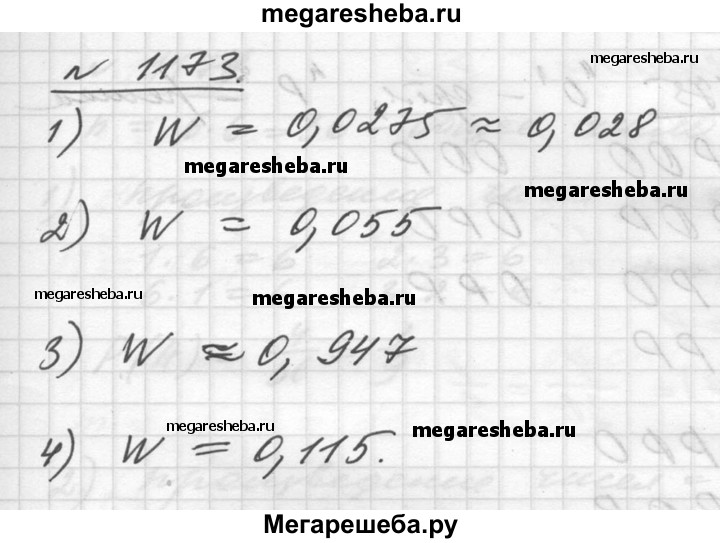 megaresheba.ru
№ 1173.
megaresheba.ru
1) W = 0,0275 ≈ 0,028
megaresheba.ru
megaresheba.ru
2) W = 0,055
megaresheba.ru
megaresheba.ru
3) W ≈ 0,947
megaresheba.ru
megaresheba.ru
4) W = 0,115.
Мегарешеба.ру